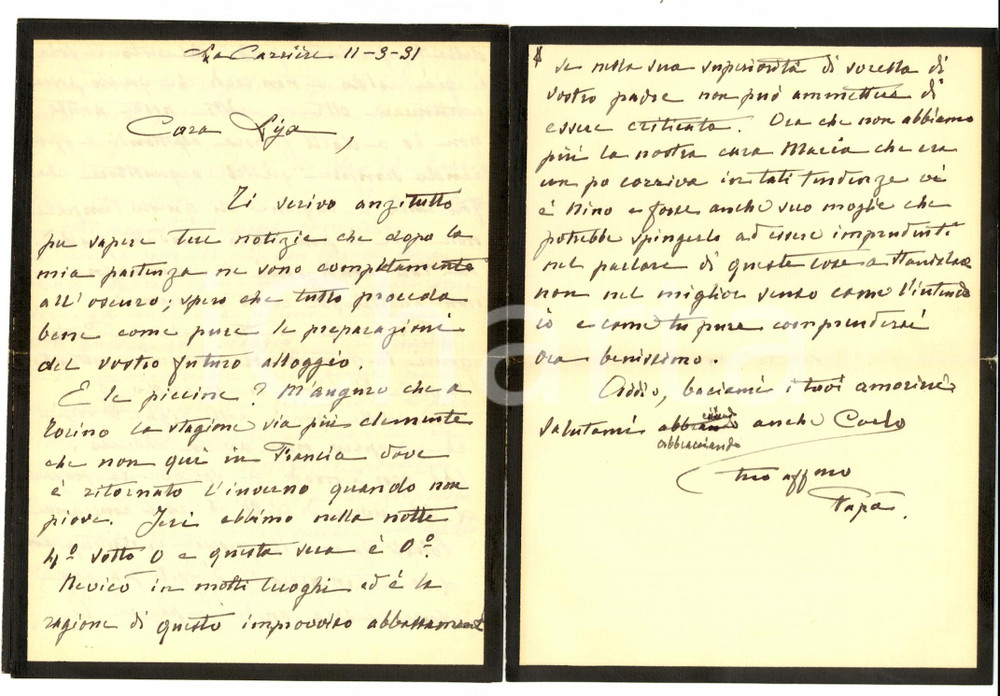 La Carrière 11-3-31
Cara Lya,
Ti scrivo anzitutto
per sapere tue notizie che dopo la
mia partenza ne sono completamente
all'oscuro; spero che tutto proceda
bene come pure le preparazioni
del vostro futuro alloggio.
E le piccine? M'auguro che a
Torino la stagione sia più clemente
che non qui in Francia dove
è ritornato l'inverno quando non
piove. Jeri ebbimo nella notte
4º sotto 0 e questa sera è 0º.
Nevicò in molti luoghi ed è la
ragione di questo improvviso abbassament
se nella sua superiorità di sorella di
vostro padre non può ammettere di
essere criticata. Ora che non abbiamo
più la nostra cara Maria che era
un po corriva in tali tendenze vi
è Nino e forse anche suo moglie che
potrebbe spingerlo ad essere imprudente
nel parlare di queste cose a
non nel miglior senso come l'intendo
io e come tu pure comprenderai
ora benissimo.
Addio, baciami i tuoi amorini
salutami anche Carlo
abbracciando
tuo affmo
Papà.